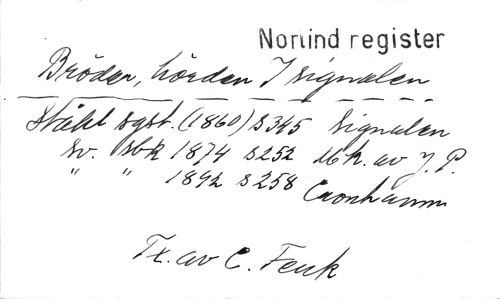 Norlind register
Bröder, hören I signalen
Ståhl sgst. (1860) s 345 signalen
sv. sbk 1874 s 252 Mk. av J. P.
" " 1892 s 258 Cronhamn
Tx. av C. Fenk